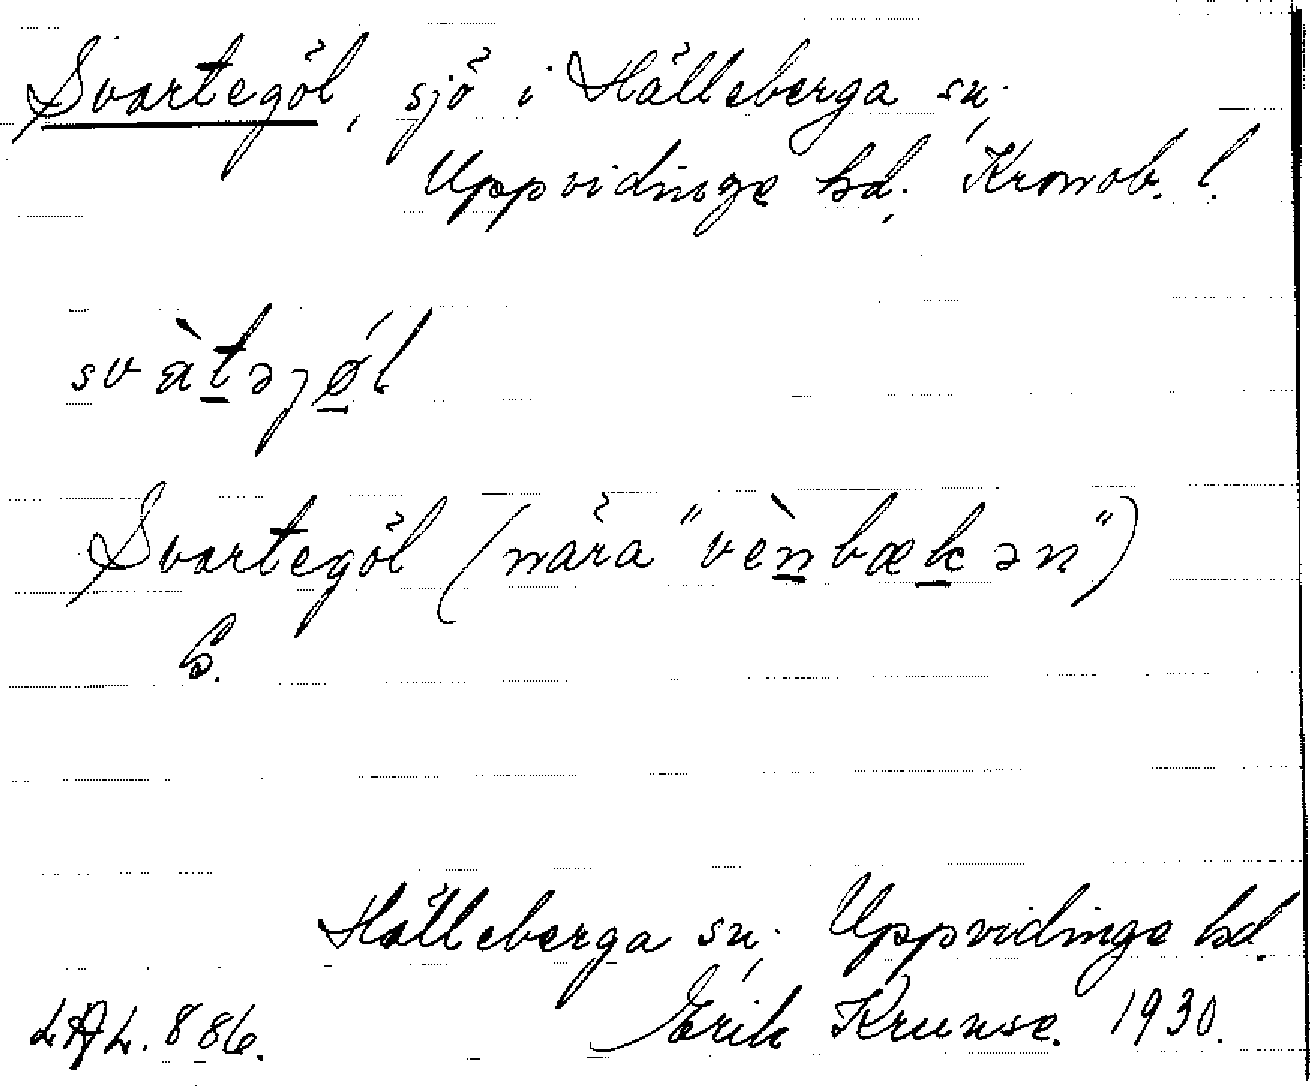 Svartegöl, sjö i Hälleberga sn,
Uppvidinge hd, Kronob. l.
svàt̲əjǿ̲l
Svartegöl (nära "vèn̲bæk̲ən")
S.
Hälleberga sn, Uppvidinge hd.
LAL. 886. Erik Krunse. 1930.